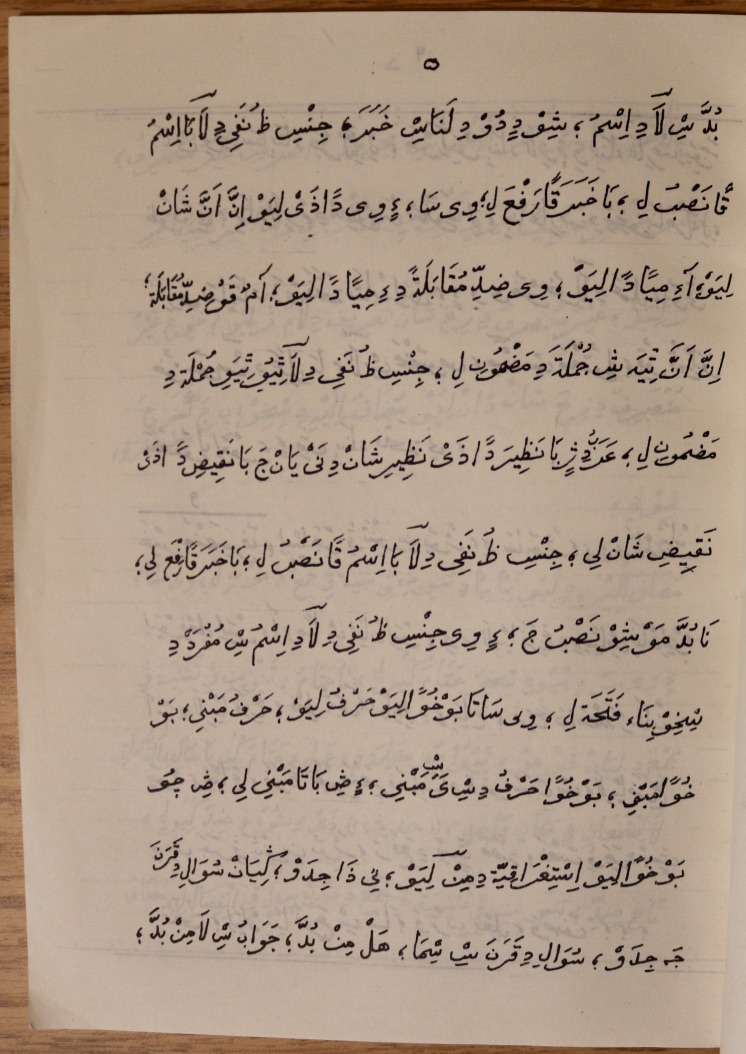 ۵
بُدَّ سِْ لَآ دِ اِسْمُ ؛ شِوْ دٍ دُوْ دِ لَنَاسِْ خَبَرَ ؛ جِنْسِ ظُ نَفِي دِ لَآ بَا اِسْمُ
قًا نَصْبُ لِ ؛ بَا خَبَرَ قًا رَفْعَ لِ ؛ وِى سَا ؛ ءٍ وِى دًا ذَىْ لِيَوْ اِنَّ اَنَّ شَانْ
لِيَوْ ؛ آءِ مِيًا دًا لِيَوْ ؛ وِى ضِدِّ مُقَابَلَةً دِءِ مِيًا دًا لِيَوْ ؛ اَمُ قَوْ ضِدِّ مُقَابَلَةً ؛
اِنَّ اَنَّ تِيَہ شِ جُمْلَةَ دِ مَضْمُونِ لِ ؛ جِنْسِ ظُ نَفِي دِ لَآ تِيُوْ تِيَوِ جُمْلَةَ دِ
مَضْمُونِ لِ ؛ عَرَبُ دِثٍ بَا نَظِيرَ دًا اذَىْ نَظِيرِ شَانْ دِ نَىْ يَانْ جَ بَا نَقِيضِ دًا اذَىْ
نَقِيضِ شَانْ لِى ؛ جِنْسِ ظُ نَفِي دِ لَآ بَا اِسْمُ قًا نَصْبُ لِ ؛ بَا خَبَرَ قًا رَفْعَ لِى ؛
نَا بُدَّ مَوْ شِوْ نَصْبُ جَ ؛ ءٍ وِى جِنْسِ ظُ نَفِي دِ لَآ دِ اِسْمُ سِْ مُفْرَدْ دِ
بِنَاء فَتْحَة لِ ؛ وِى سَا تَا بَوْ خُوًا لِيَوْ حَرْفُ لِيَوْ ؛ حَرْفُ مَبْنِي ؛ بَوْ
خُوًا مَبْنِي ؛ بَوْ خُوًا حَرْفُ دِ سِْ ىَ سِْ مَبْنِي ؛ ءٍ ضِ بَا تَا مَبْنِي لِى ؛ ضِ
بَوْ خُوًا لِيَوْ اِسْتِغْرَاقِيَّة دِ مِنْ لِيَوْ ؛ نِي ذَا جِدَوْ ؛ كِيَانْ سُوَالِ دِ قَرَنَ
جَہ جِدَوْ ؛ سُوَالِ دِ قَرَنَ سِْ شِمَا ؛ هَلْ مِنْ بُدَّ ؛ جَوَابُ سِْ لَا مِنْ بُدَّ ؛